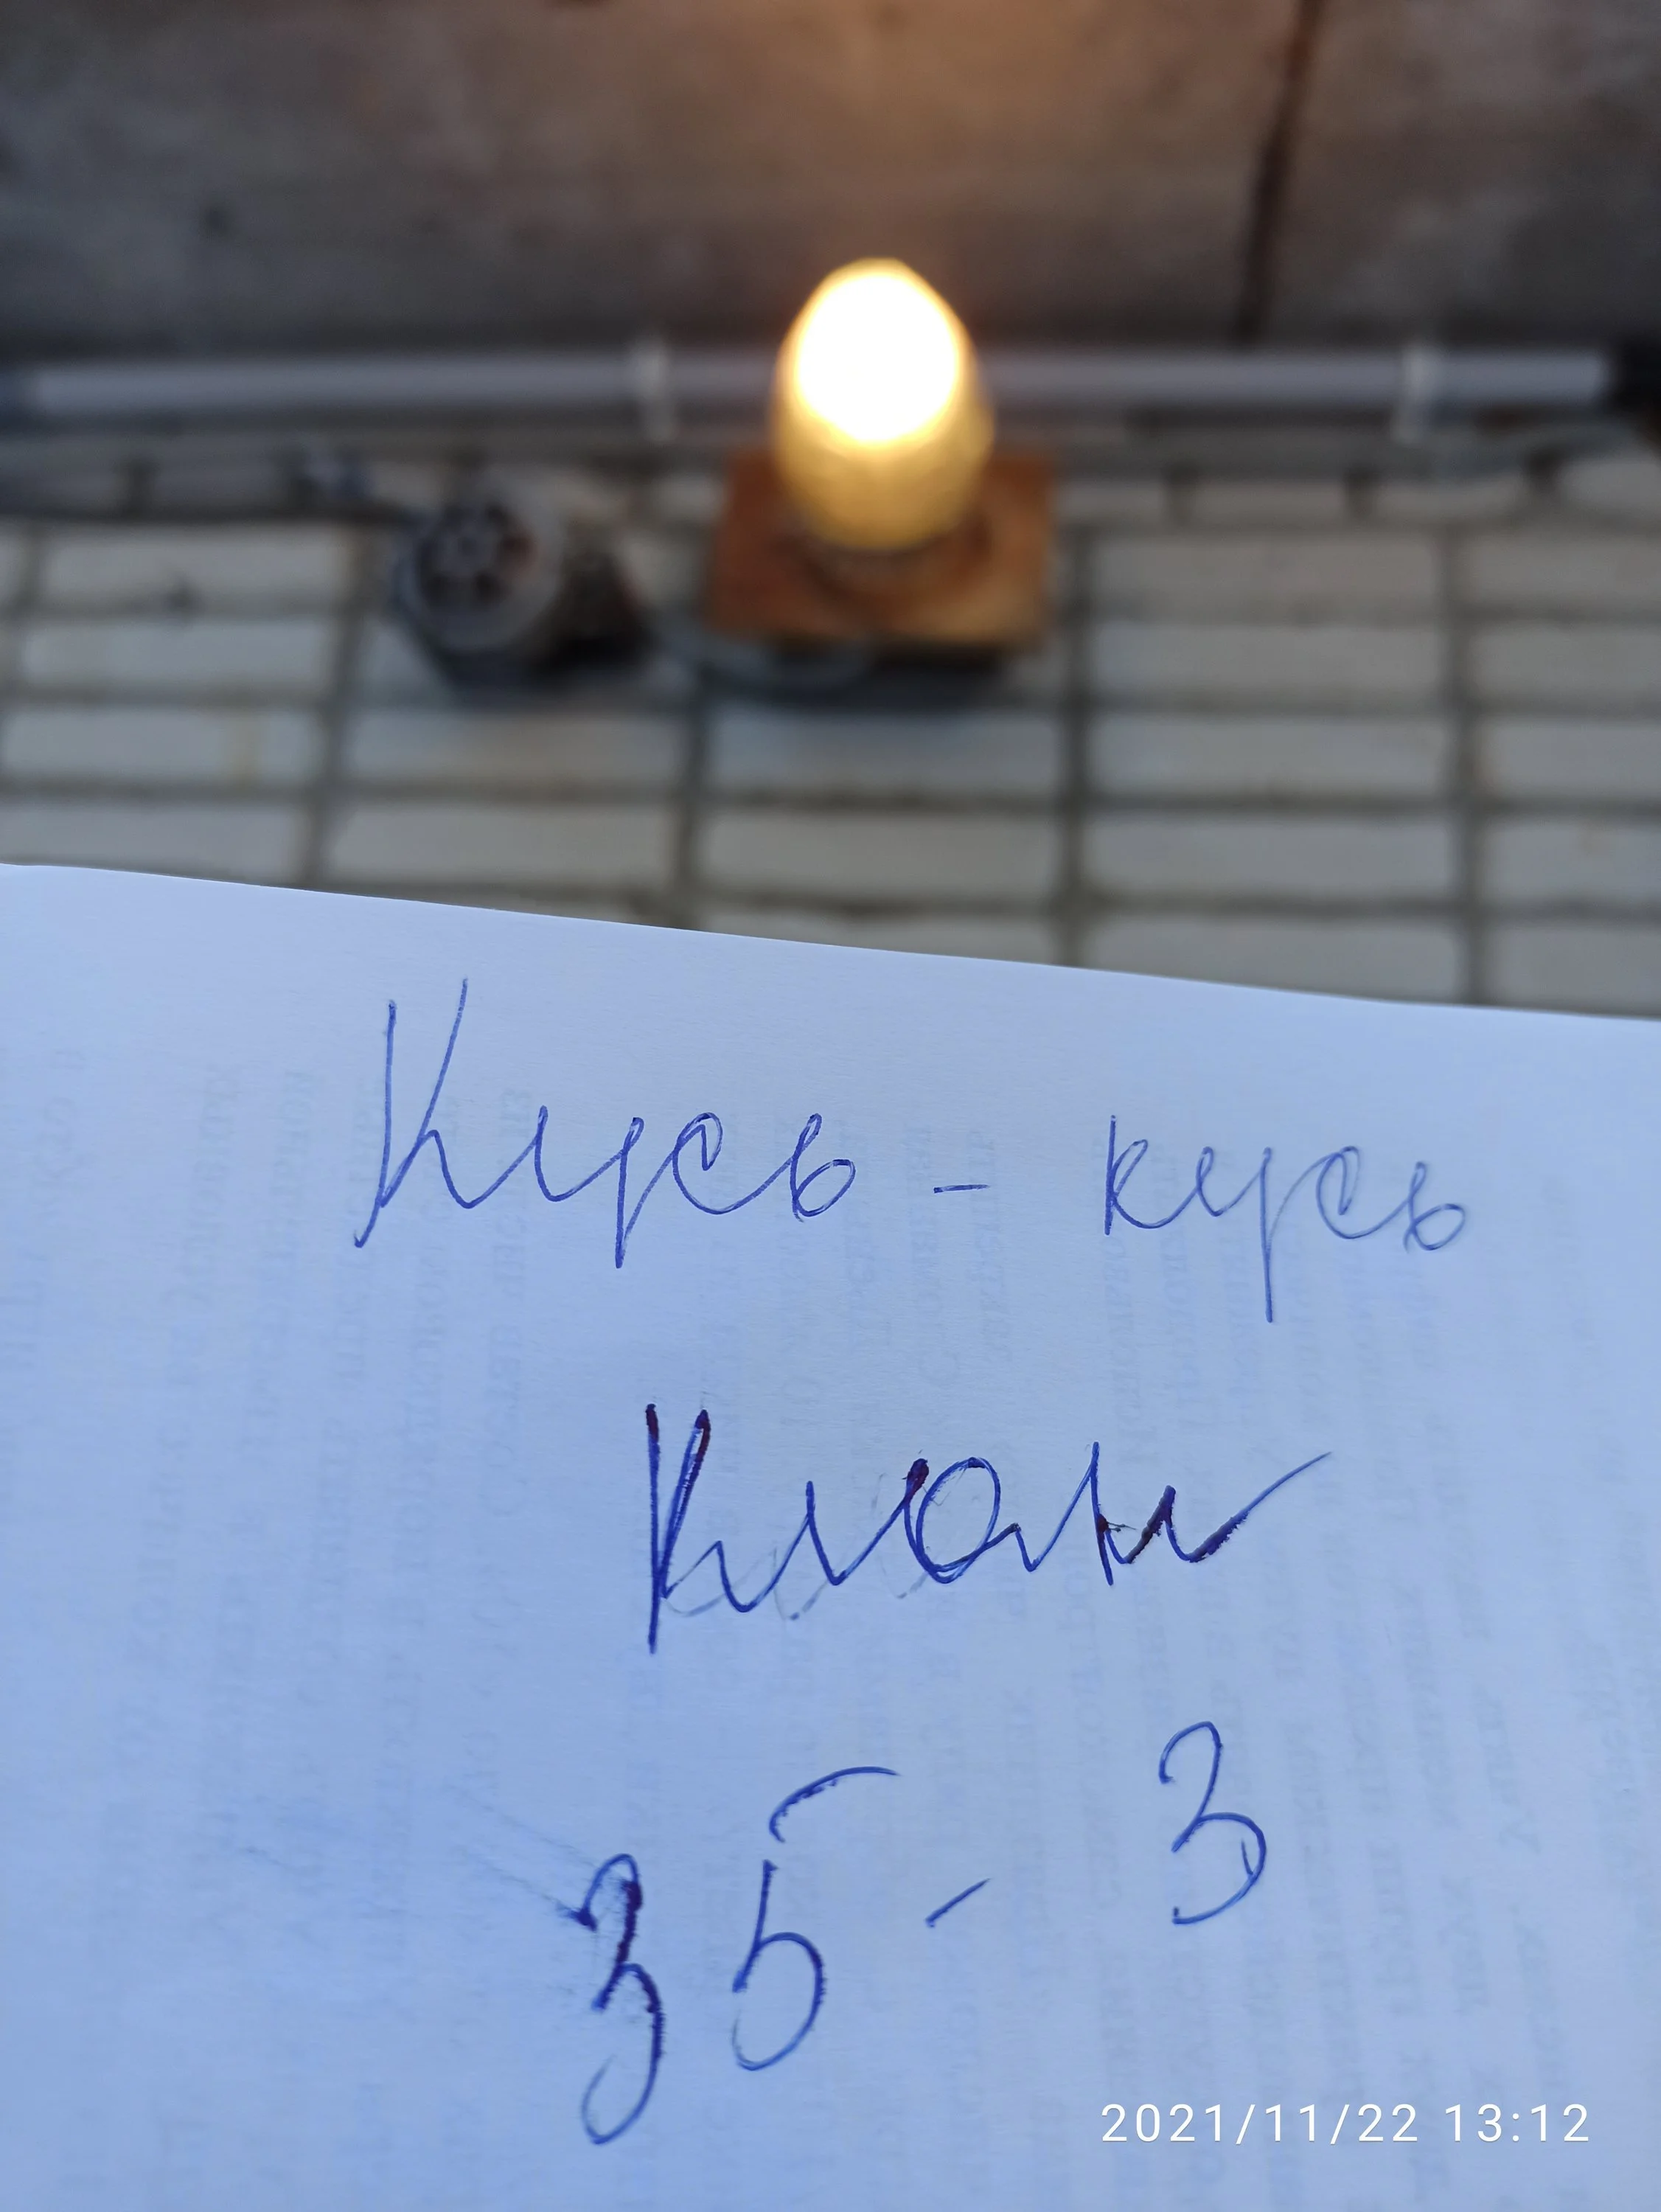 Кусь - кусь
Клан
35 - 3
2021/11/22 13:12